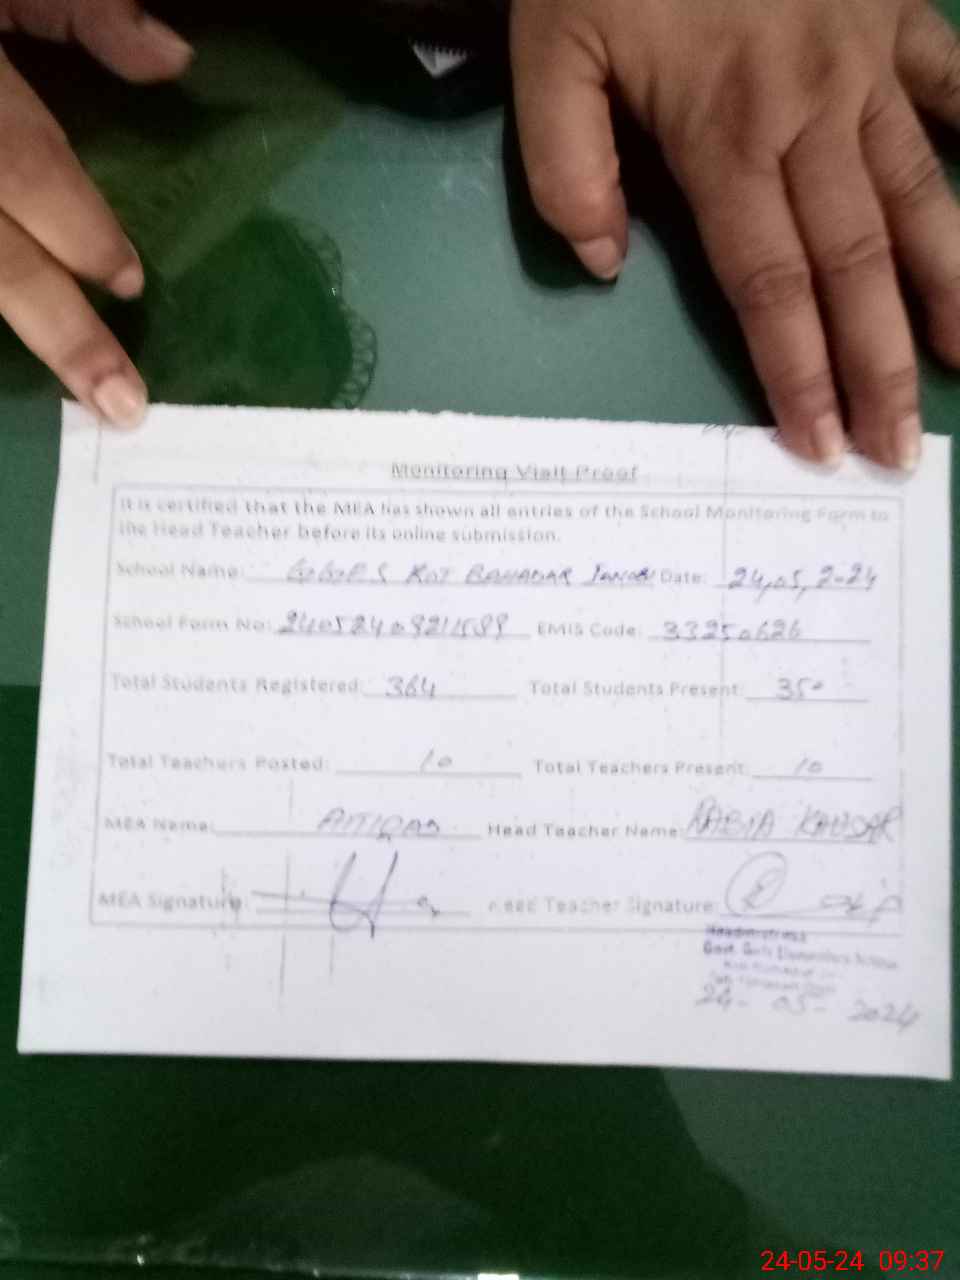 Monitoring Visit Proof
It is certified that the MEA has shown all entries of the School Monitoring Form to
the Head Teacher before its online submission.
School Name: GGES KOT BAHADAR Date: 24,05, 2-24
School Form No: EMIS Code: 33250626
Total Students Registered: 364 Total Students Present: 350
Total Teachers Posted: 10 Total Teachers Present: 10
MEA Name: Head Teacher Name: RABIA KAUSAR
MEA Signature: Head Teacher Signature:
Headmistress
Govt. Girls Elementary School
24- 05- 2024
24-05-24 09:37